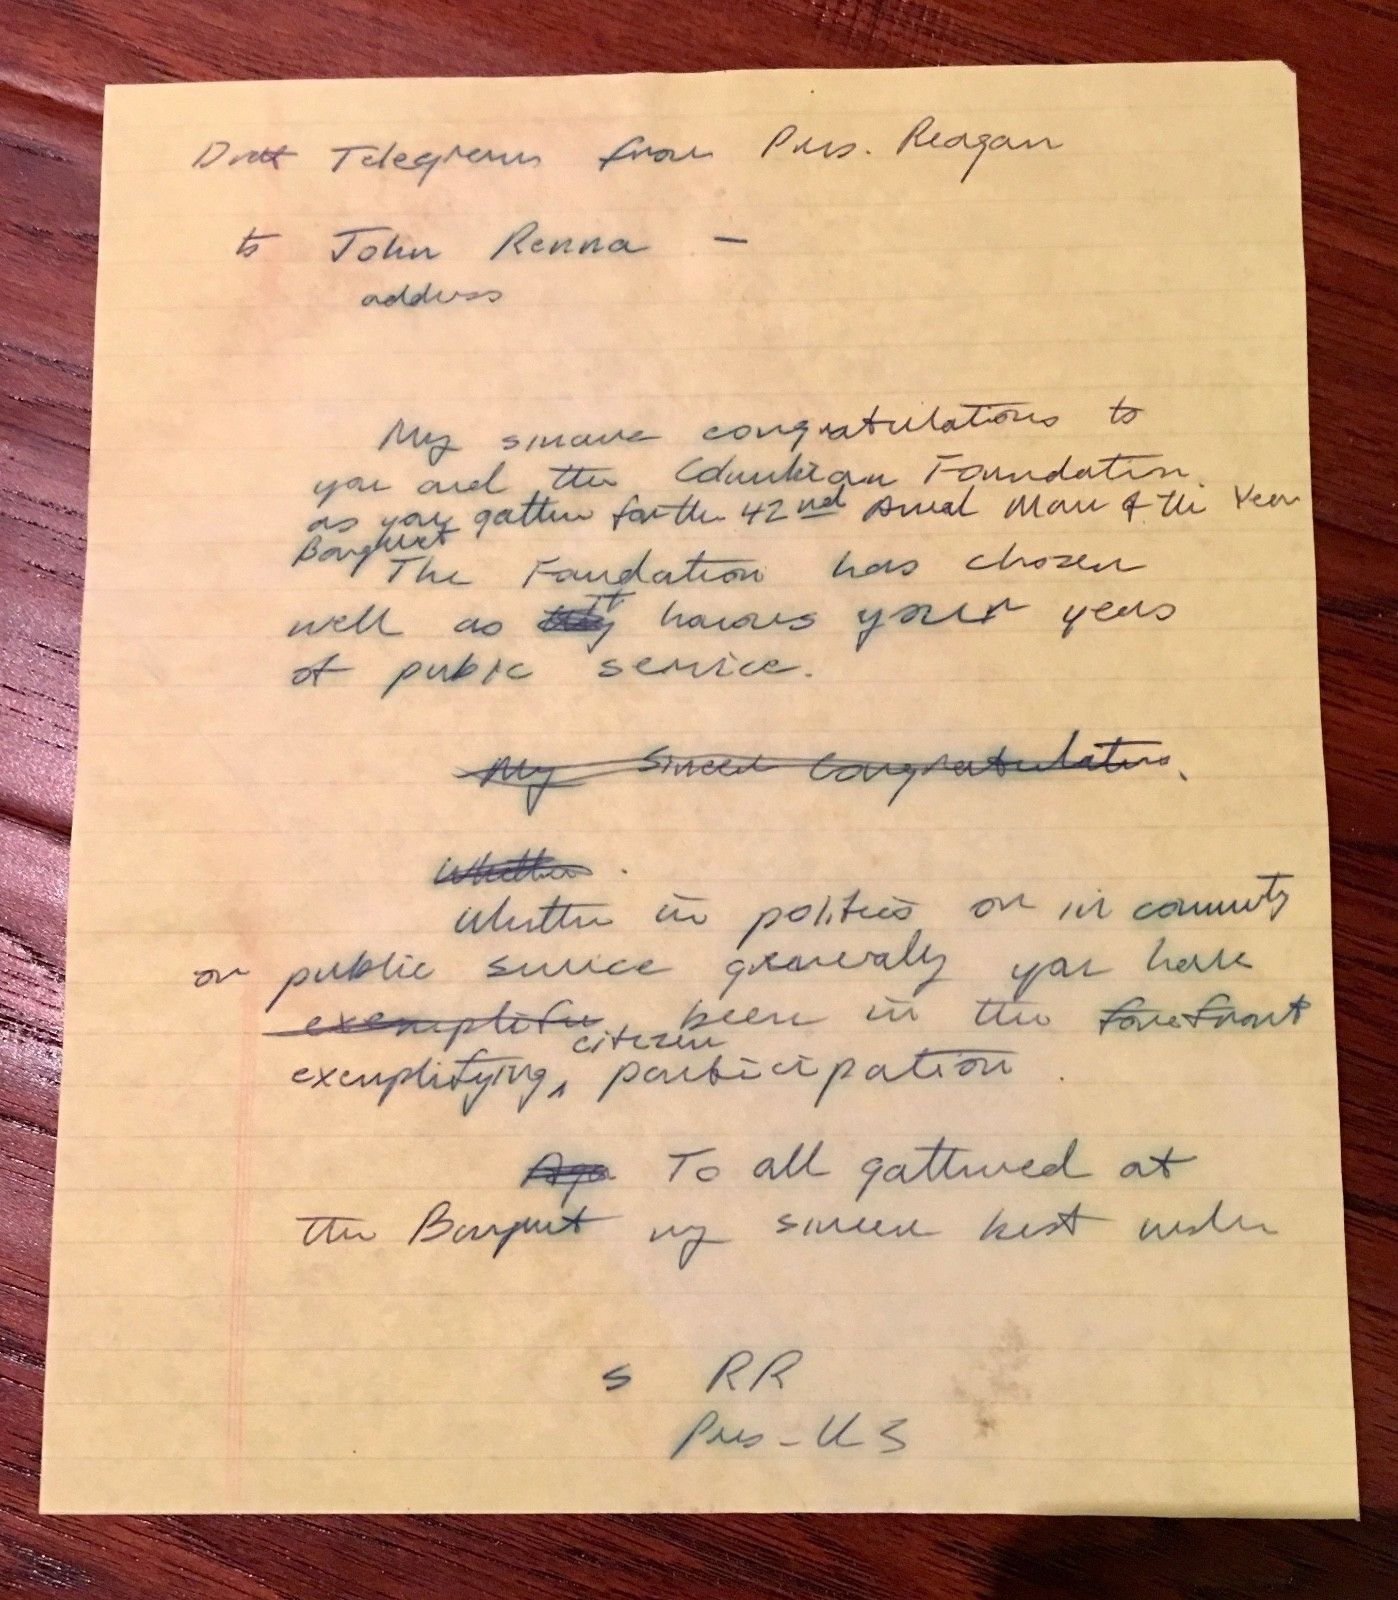 Draft Telegram from Pres. Reagan
to John Renna —
address
My sincere congratulations to
you and the Columbian Foundation.
as you gather for the 42nd Annual Man of the Year
Banquet
The Foundation has chosen
well as it honors your years
of public service.
My Sincere Congratulations.
Whether .
Whether in politics or in community
or public service generally you have
exemplified been in the forefront
citizen
exemplifying, participation .
To all gathered at
the Banquet my sincere best wishes
s RR
Pres - U S